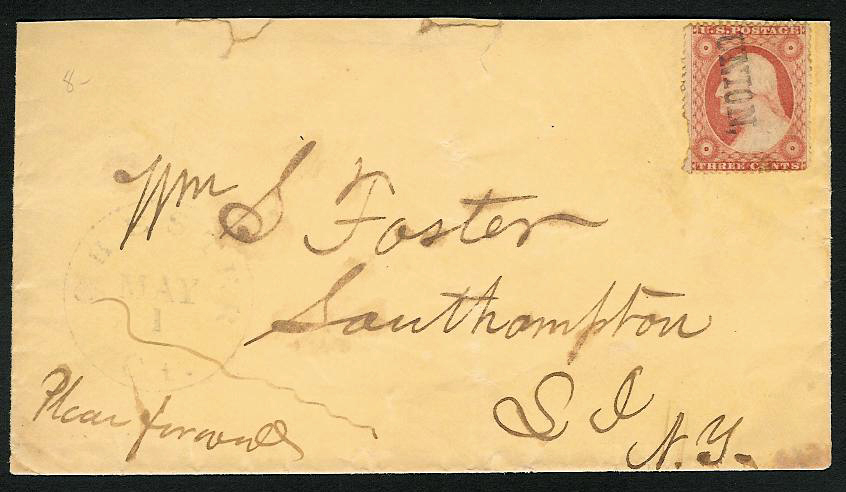 8-
U.S. POSTAGE
THREE CENTS
Wm S Foster
Southampton
L I
N.Y.
MAY
1
Please forward